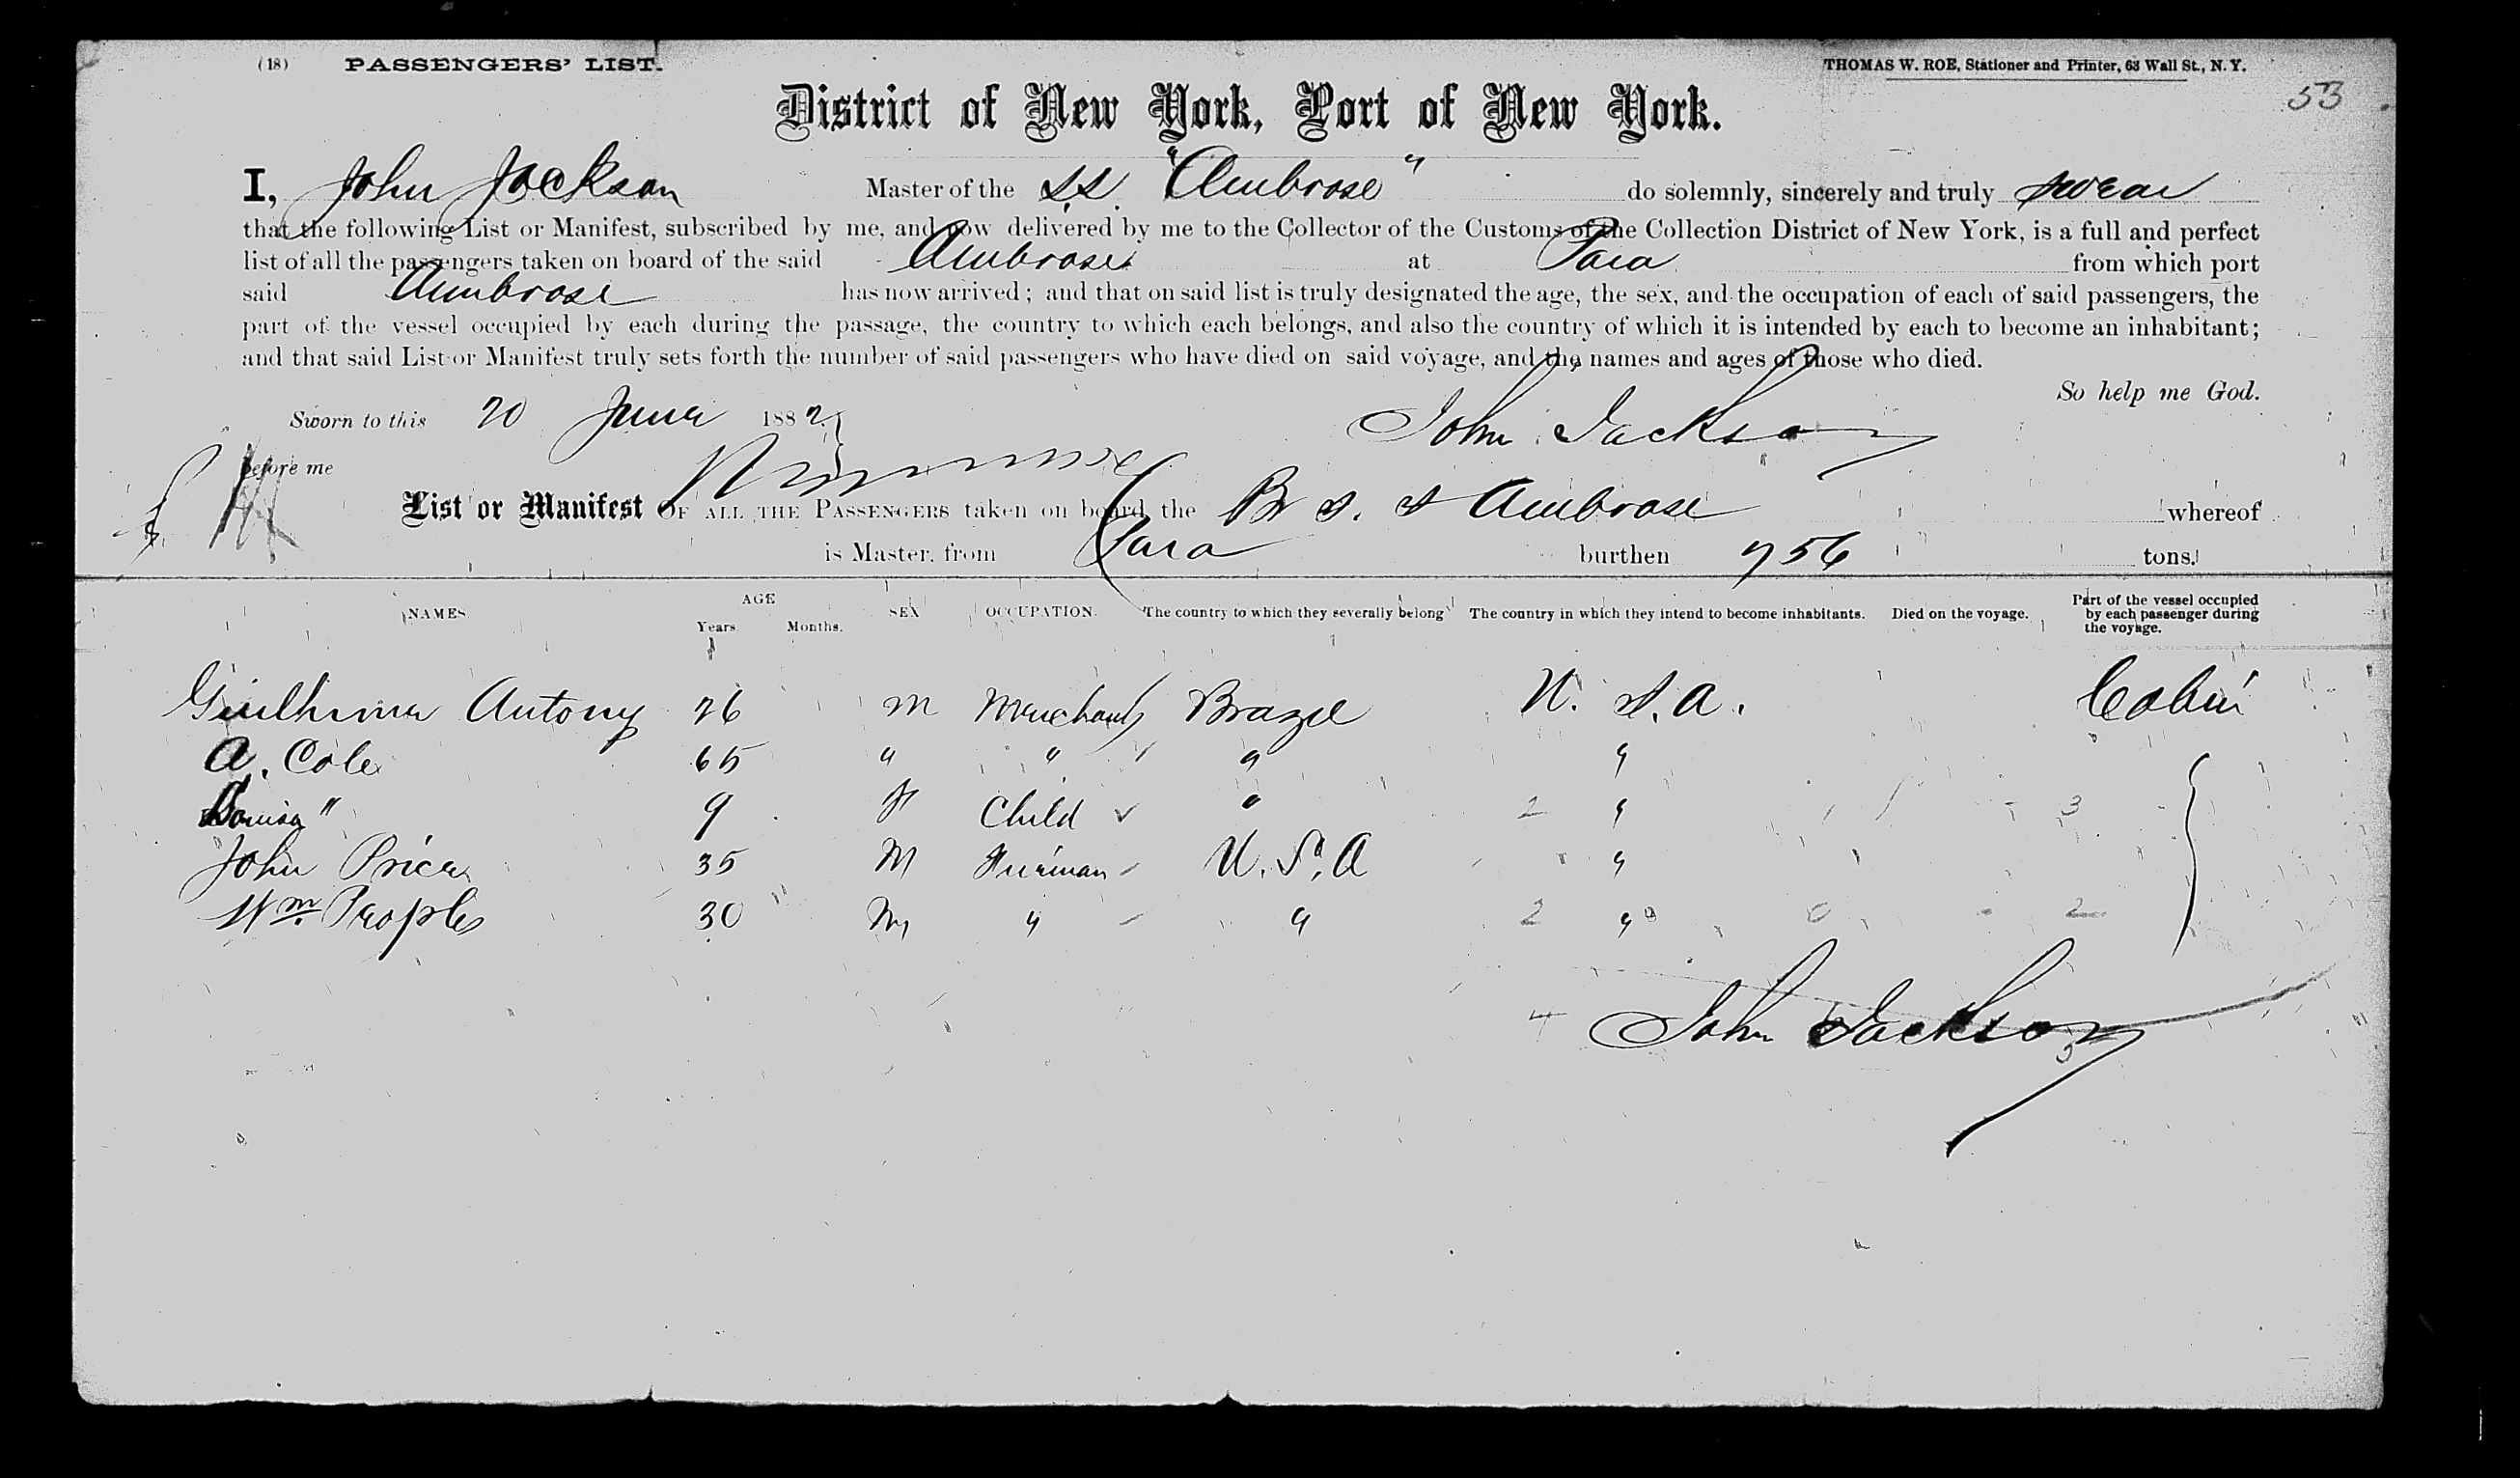 (18) PASSENGERS' LIST. THOMAS W. ROE, Stationer and Printer, 63 Wall St., N. Y.
53
District of New York, Port of New York.
I, John Jackson Master of the S.S. "Ambrose" do solemnly, sincerely and truly swear
that the following List or Manifest, subscribed by me, and now delivered by me to the Collector of the Customs of the Collection District of New York, is a full and perfect
list of all the passengers taken on board of the said Ambrose at Para from which port
said Ambrose has now arrived; and that on said list is truly designated the age, the sex, and the occupation of each of said passengers, the
part of the vessel occupied by each during the passage, the country to which each belongs, and also the country of which it is intended by each to become an inhabitant;
and that said List or Manifest truly sets forth the number of said passengers who have died on said voyage, and the names and ages of those who died.
So help me God.
Sworn to this 20 June 1882 John Jackson
before me
List or Manifest OF ALL THE PASSENGERS taken on board the Br S. S Ambrose whereof
is Master, from Para burthen 956 tons.
NAMES AGE Years Months. SEX OCCUPATION. The country to which they severally belong The country in which they intend to become inhabitants. Died on the voyage. Part of the vessel occupied by each passenger during the voyage.
Antony 26 M Merchant Brazil U. S. A. Cabin
A. Cole 65 " " " "
Louisa " 9 F Child " 2 " 1 3
John Price 35 M Fireman U. S. A "
Wm. Peoples 30 M " " 2 " 0 2
4 John Jackson 5